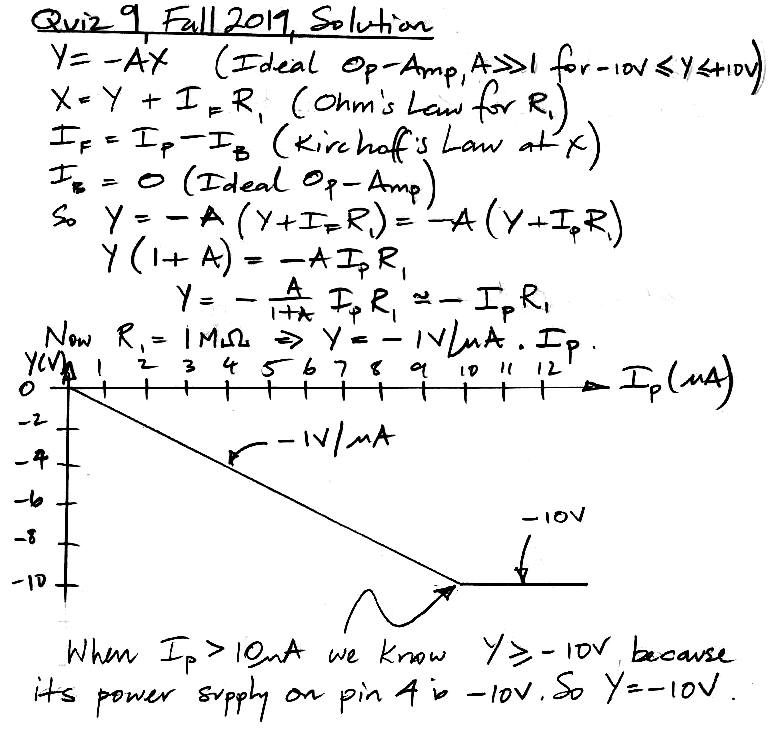 Quiz 9, Fall 2019, Solution
Y = -AX (Ideal Op-Amp, A>>1 for -10V ≤ Y ≤ +10V)
X = Y + I_F R_1 (Ohm's Law for R_1)
I_F = I_P - I_B (Kirchoff's Law at X)
I_B = 0 (Ideal Op-Amp)
So Y = -A (Y + I_F R_1) = -A (Y + I_P R_1)
Y (1 + A) = -A I_P R_1
Y = - A/(1+A) I_P R_1 ≃ - I_P R_1
Now R_1 = 1MΩ ⇒ Y = - 1V/μA . I_P .
Y(V) 1 2 3 4 5 6 7 8 9 10 11 12
0 I_P (μA)
-2
-1V/μA
-4
-6
-10V
-8
-10
When I_P > 10μA we know Y ≥ -10V, because
its power supply on pin 4 is -10V. So Y = -10V.